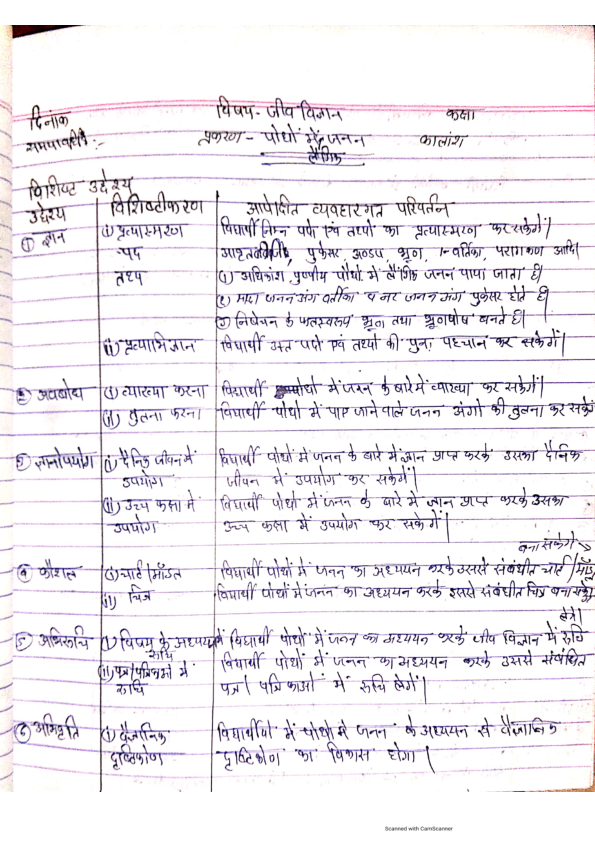 दिनांक विषय - जीव विज्ञान कक्षा
प्रकरण - पौधों में जनन कालांश
लैंगिक
विशिष्ट उद्देश्य
उद्देश्य विशिष्टीकरण व्यवहारगत परिवर्तन
① ज्ञान (i) प्रत्यास्मरण विद्यार्थी निम्न पदों एवं तथ्यों का प्रत्यास्मरण कर सकेंगे।
पद पुंकेसर, अण्डप, भ्रूण, वर्तिका, परागकण आदि।
तथ्य (1) अधिकांश पुष्पीय पौधों में लैंगिक जनन पाया जाता है।
(2) मादा जनन अंग वर्तीका व नर जनन अंग पुंकेसर होते है।
(3) निषेचन के फलस्वरूप भ्रूण तथा भ्रूणपोष बनते है।
(ii) प्रत्याभिज्ञान विद्यार्थी उक्त पदों एवं तथ्यों की पुनः पहचान कर सकेंगे।
② अवबोध (i) व्याख्या करना विद्यार्थी पौधों में जनन के बारे में व्याख्या कर सकेंगे।
(ii) तुलना करना विद्यार्थी पौधों में पाए जाने वाले जनन अंगों की तुलना कर सकेंगे
③ ज्ञानोपयोग (i) दैनिक जीवन में विद्यार्थी पौधों में जनन के बारे में ज्ञान प्राप्त करके उसका दैनिक
उपयोग जीवन में उपयोग कर सकेंगे।
(ii) उच्च कक्षा में विद्यार्थी पौधों में जनन के बारे में ज्ञान प्राप्त करके उसका
उपयोग उच्च कक्षा में उपयोग कर सकेगें।
बना सकेंगे
④ कौशल (i) चार्ट / मॉडल विद्यार्थी पौधों में जनन का अध्ययन करके उससे संबंधीत चार्ट / मॉडल
(ii) चित्र विद्यार्थी पौधों में जनन का अध्ययन करके इससे संबंधीत चित्र बना सकेंगे
लेंगे।
⑤ अभिरूचि (i) विषय के अध्ययन में विद्यार्थी पौधों में जनन का अध्ययन करके जीव विज्ञान में रुचि
रूचि
(ii) पत्र / पत्रिकाओं में विद्यार्थी पौधों में जनन का अध्ययन करके उससे संबंधित
रुचि पत्र / पत्रिकाओं में रुचि लेगें।
⑥ अभिवृति (i) वैज्ञानिक विद्यार्थीयों में पौधों में जनन के अध्ययन से वैज्ञानिक
दृष्टिकोण दृष्टिकोण का विकास होगा।
Scanned with CamScanner